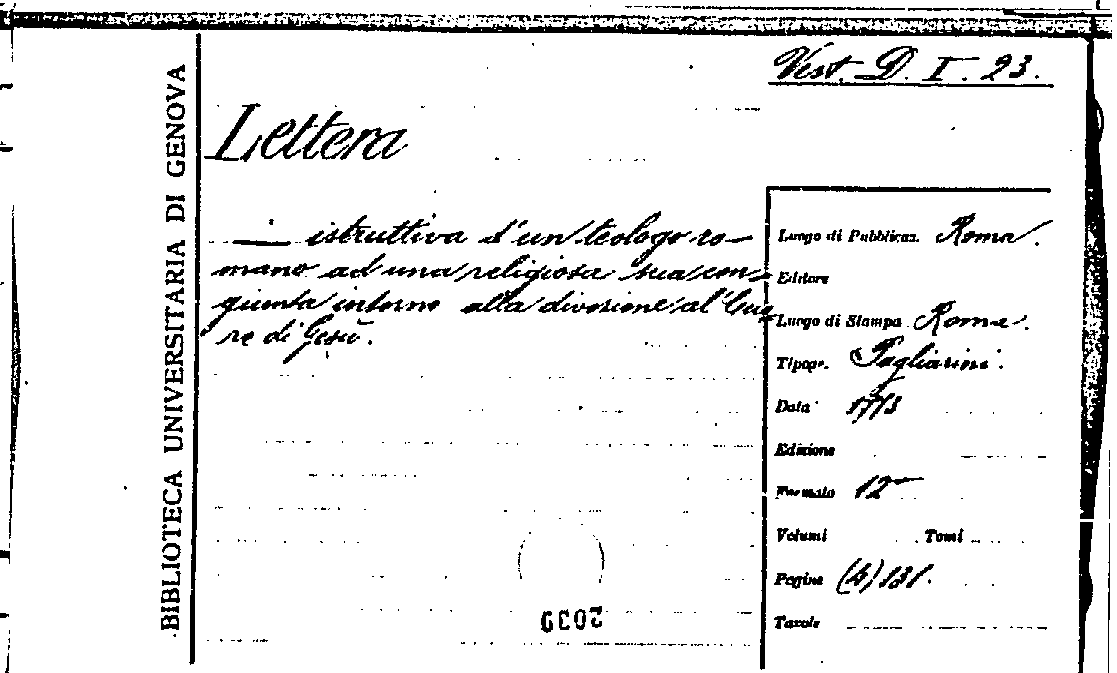 Vest. D. I. 23.
BIBLIOTECA UNIVERSITARIA DI GENOVA
Lettera
— istruttiva d'un teologo ro-
mano ad una religiosa sua con-
giunta intorno alla divozione al Cuo-
re di Gesù.
Luogo di Pubblicaz. Roma.
Editore
Luogo di Stampa Roma.
Tipogr. Pagliarini.
Data
Edizione
Formato 12°
Volumi Tomi
Pagine (4) 131.
Tavole